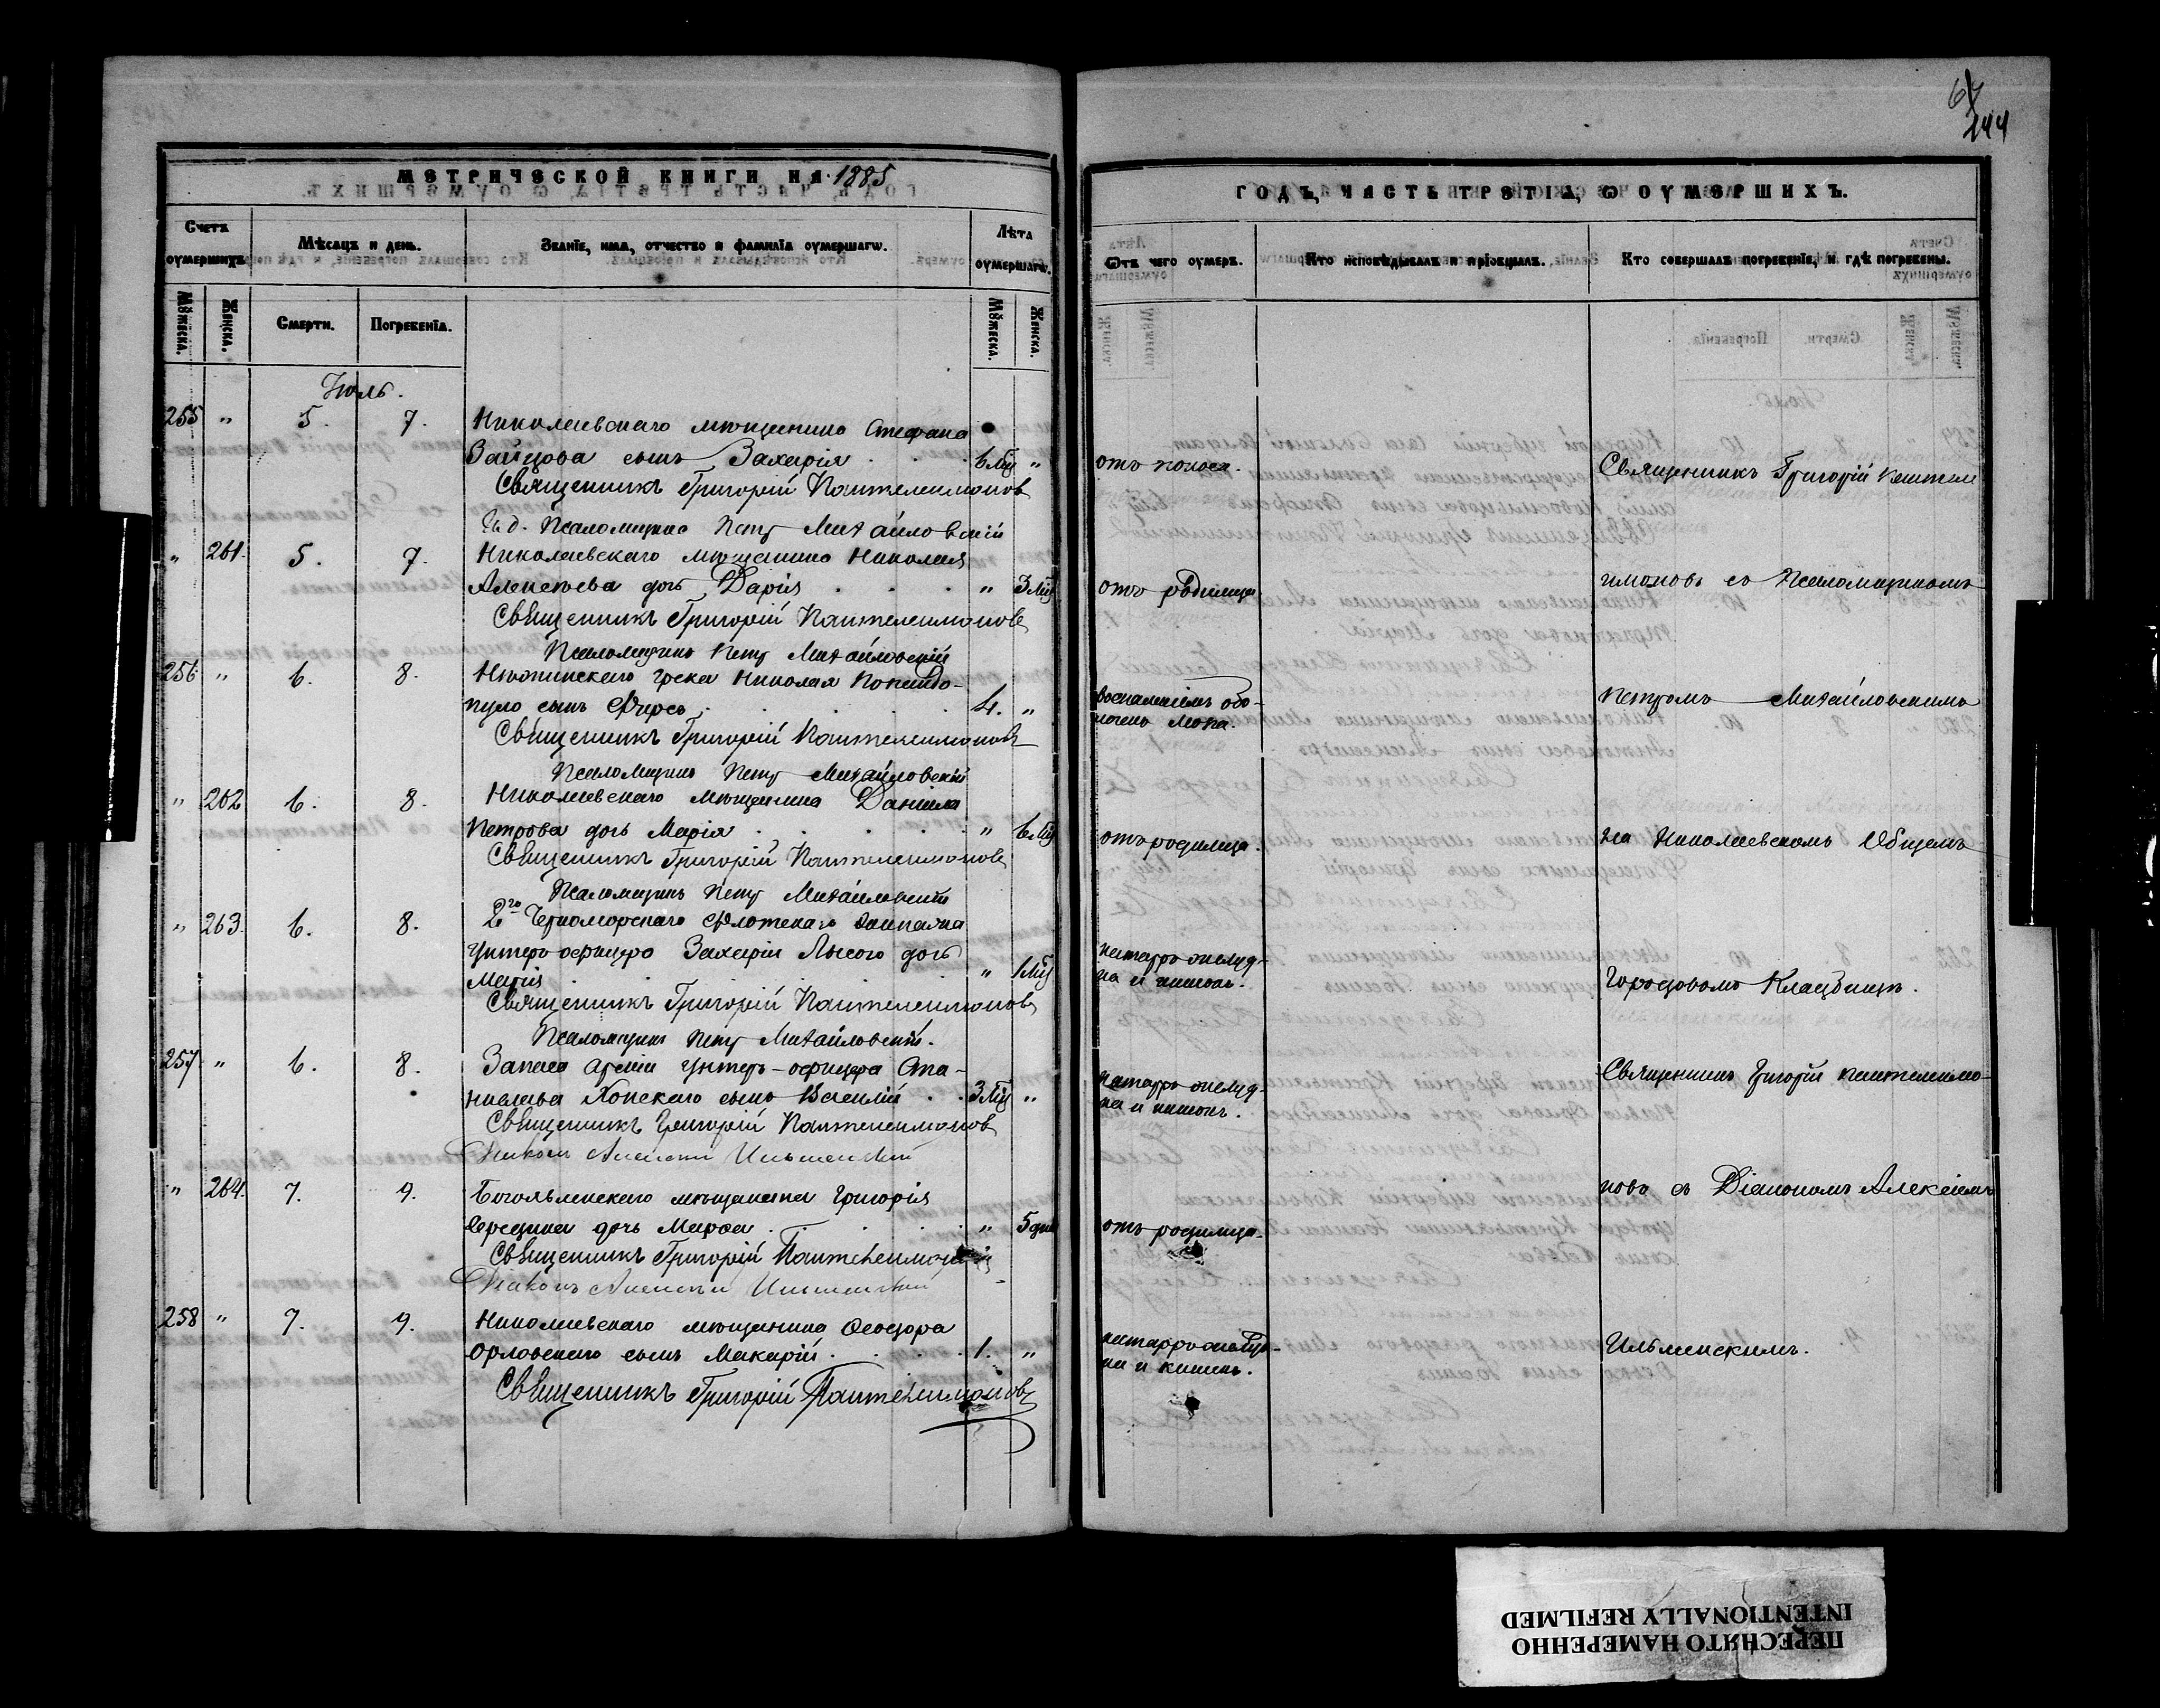 МЕТРИЧЕСКОЙ КНИГИ НА 1885
Счетъ оумершихъ.
Мѣсяцъ и день.
Званіе, имя, отчество и фамиліа оумершагѡ.
Лѣта оумершагѡ.
Мѹжеска.
Женска.
Смерти.
Погребеніа.
Мѹжеска.
Женска.
Іюль.
255 " 5. 7. Николаевскаго мѣщанина Стефана
Зайцова сынъ Захарія 6 Мц "
Священникъ Григорій Пантелеимоновъ
И. д. Псаломщика Петръ Михайловскій
" 261. 5. 7. Николаевскаго мѣщанина Николая
Алексѣева дочь Дарія " 3 Мц
Священникъ Григорій Пантелеимоновъ
Псаломщикъ Петръ Михайловскій
256 " 6. 8. Нѣжинскаго грека Николая
пуло сынъ 4. "
Священникъ Григорій Пантелеимоновъ
Псаломщикъ Петръ Михайловскій
" 262 6. 8. Николаевскаго мѣщанина Даніила
Петрова дочь Марія " 6 Мц
Священникъ Григорій Пантелеимоновъ
Псаломщикъ Петръ Михайловскій
" 263. 6. 8. 2го Черноморскаго Флотскаго Экипажа
унтеръ-офицера Захарія Лысого дочь
Марія " 1 Мц
Священникъ Григорій Пантелеимоновъ
Псаломщикъ Петръ Михайловскій.
257 " 6. 8. Запаса Арміи унтеръ-офицера Ста-
нислава Хонскаго сынъ Василій 3 Мц "
Священникъ Григорій Пантелеимоновъ
Діаконъ Алексѣй Ильменскій
" 264. 7. 9. Богоявленскаго мѣщанина Григорія
Середина дочь Марѳа " 5 дней
Священникъ Григорій Пантелеимоновъ
Діаконъ Алексѣй Ильменскій
258 " 7. 9. Николаевскаго мѣщанина Ѳеодора
Орловскаго сынъ Макарій 1. "
Священникъ Григорій Пантелеимоновъ
67
244
ГОДЪ, ЧАСТЬ ТРЕТІА, Ѡ ОУМЕРШИХЪ.
Ѿтъ чего оумеръ.
Кто исповѣдывалъ и пріобщалъ.
Кто совершалъ погребеніе, и гдѣ погребены.
отъ поноса.
Священникъ Григорій Пантеле
отъ родимца
имоновъ съ Псаломщикомъ
воспаленіемъ обо-
лочекъ мозга.
Петромъ Михайловскимъ
отъ родимца.
на Николаевскомъ Общемъ
катарръ желуд-
ка и кишокъ.
Городовомъ Кладбищѣ.
катарръ желуд-
ка и кишокъ.
Священникъ Григорій Пантелеимо-
новъ съ Діакономъ Алексіемъ
отъ родимца.
катарръ желуд-
ка и кишокъ.
Ильменскимъ.
ПЕРЕСНЯТО НАМЕРЕННО
INTENTIONALLY REFILMED